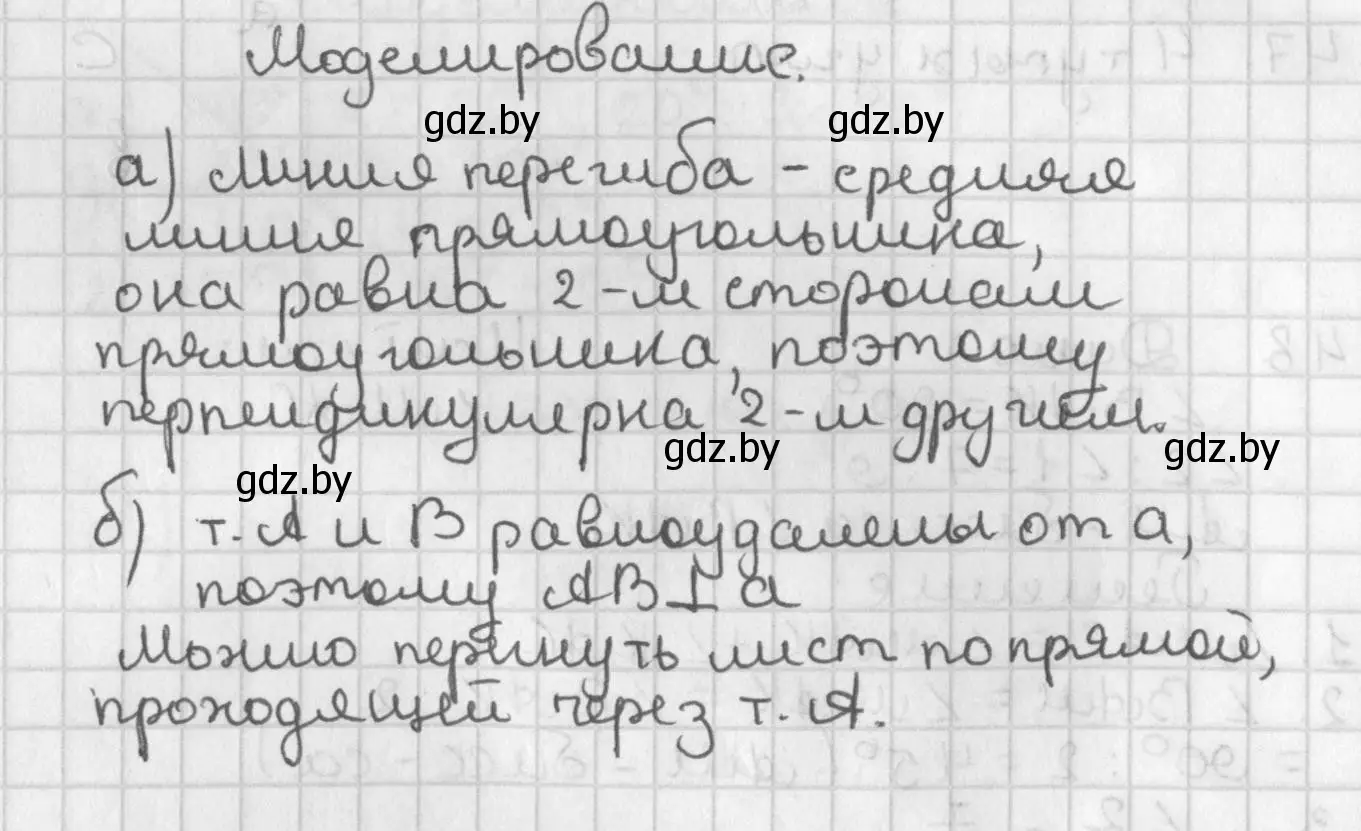 Моделирование.
gdz.by gdz.by
а) линия перегиба - средняя
линия прямоугольника,
она равна 2-м сторонам
прямоугольника, поэтому
перпендикулярна 2-м другим.
gdz.by gdz.by
gdz.by
б) т. А и В равноудалены от а,
поэтому АВ⊥а
Можно перегнуть лист по прямой,
проходящей через т. А.